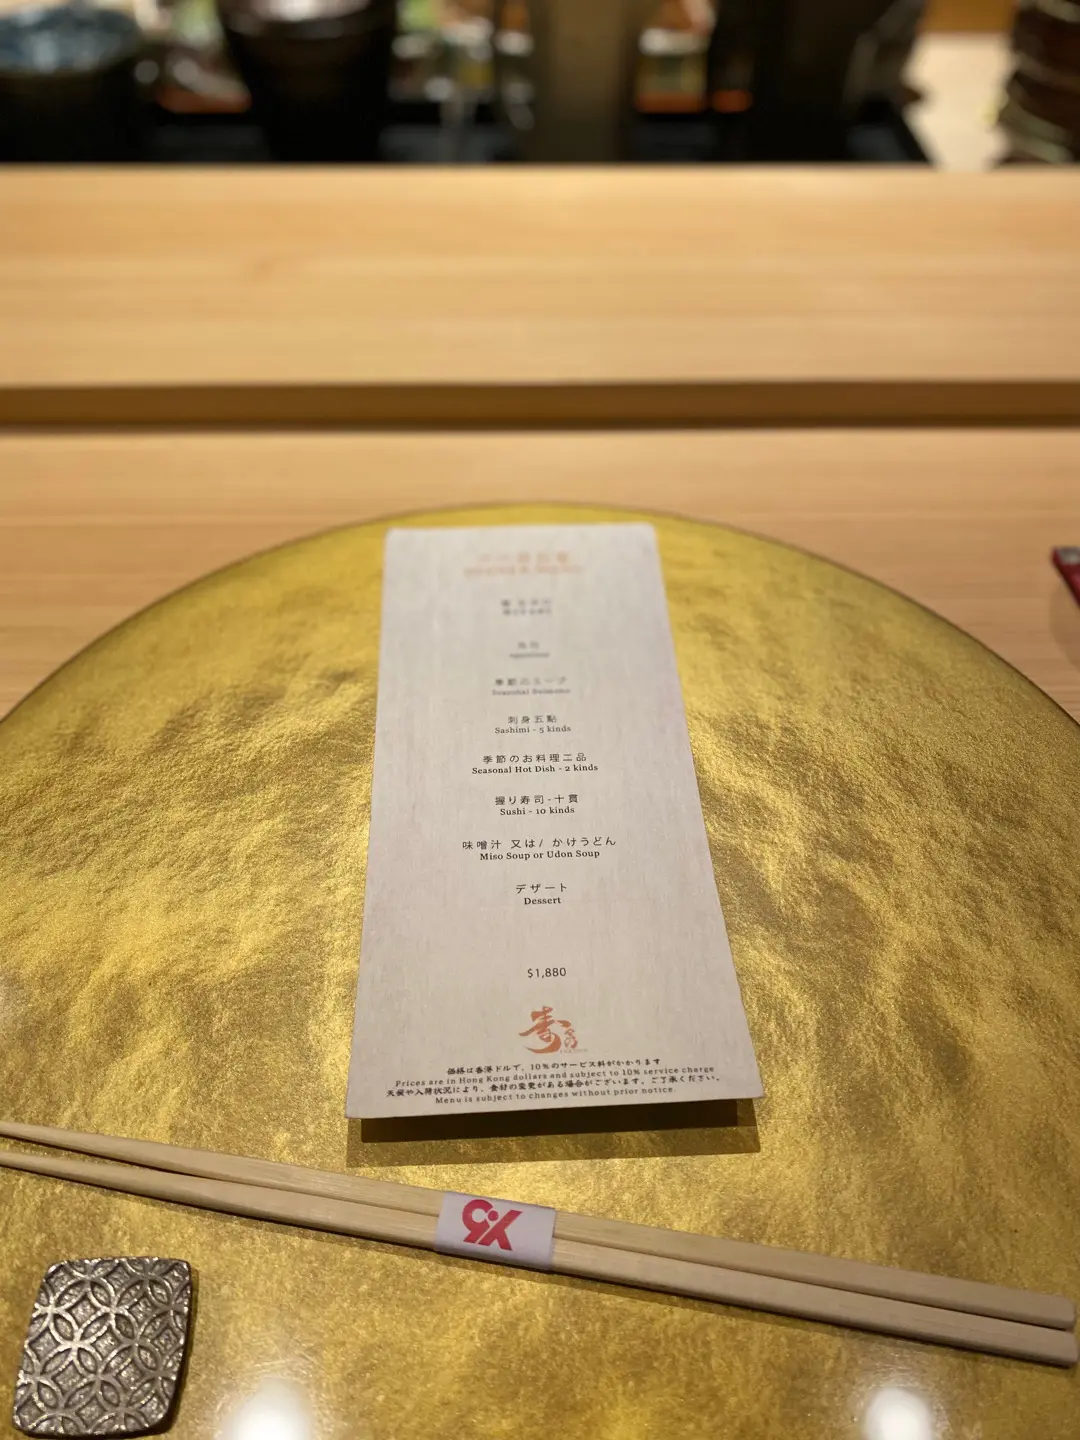 季節のスープ
Seasonal Suimono
刺身五點
Sashimi - 5 kinds
季節のお料理二品
Seasonal Hot Dish - 2 kinds
握り寿司-十貫
Sushi - 10 kinds
味噌汁 又は/ かけうどん
Miso Soup or Udon Soup
デザート
Dessert
$1,880
寿
価格は香港ドルで、10%のサービス料がかかります
Prices are in Hong Kong dollars and subject to 10% service charge
天候や入荷状況により、食材の変更がある場合がございます。ご了承ください。
Menu is subject to changes without prior notice.